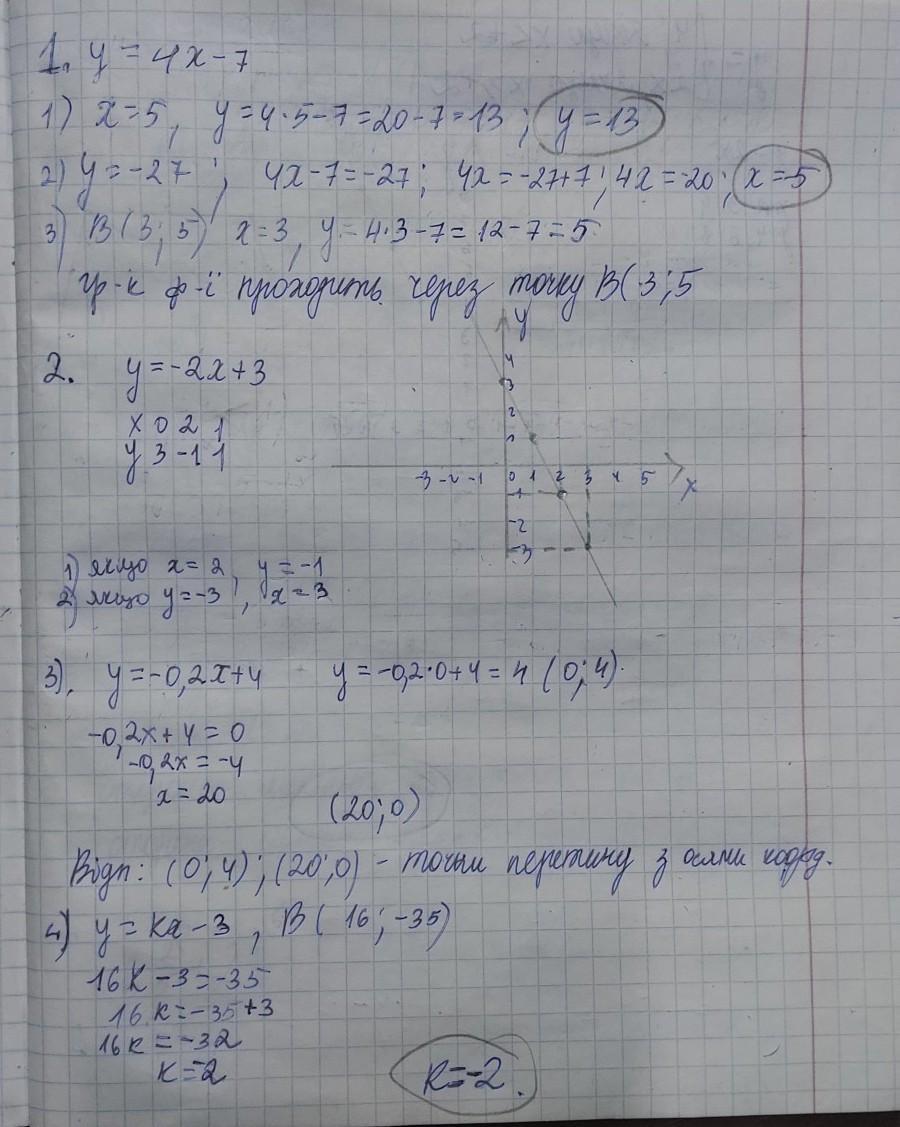 1. y = 4x - 7
1) x=5, y=4·5-7=20-7=13; y=13
2) y=-27; 4x-7=-27; 4x=-27+7; 4x=-20; x=-5
3) B(3; 5) x=3, y=4·3-7=12-7=5
гр-к ф-ії проходить через точку B(3;5
y
4
3
2. y=-2x+3
2
x 0 2 1
1
y 3 -1 1
-3 -2 -1 0 1 2 3 4 5 x
-1
-2
-3
1) якщо x=2, y=-1
2) якщо y=-3, x=3
3), y=-0,2x+4 y=-0,2·0+4=4 (0;4).
-0,2x+4=0
-0,2x=-4
x=20
(20;0)
Відп: (0;4); (20;0) - точки перетину з осями коорд.
4) y=kx-3, B(16;-35)
16k-3=-35
16k=-35+3
16k=-32
k=-2
k=-2.